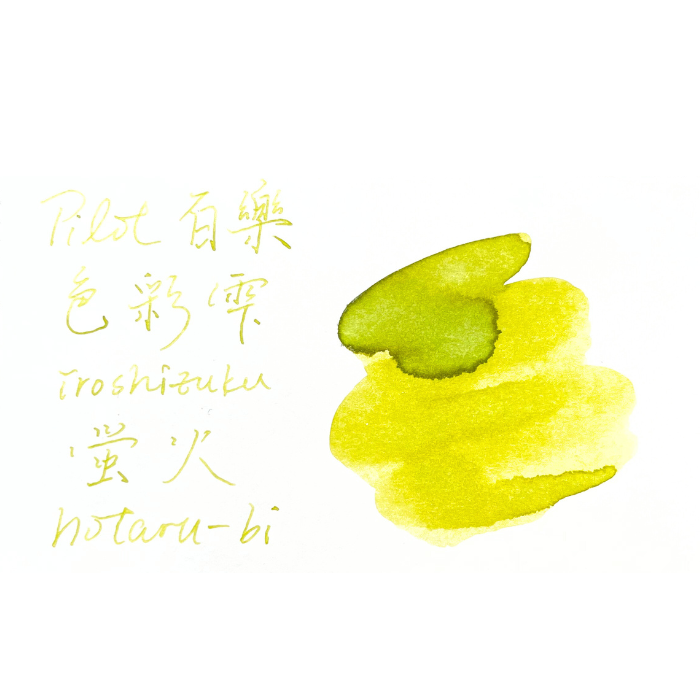 Pilot 百樂
色彩雫
iroshizuku
螢火
hotaru-bi